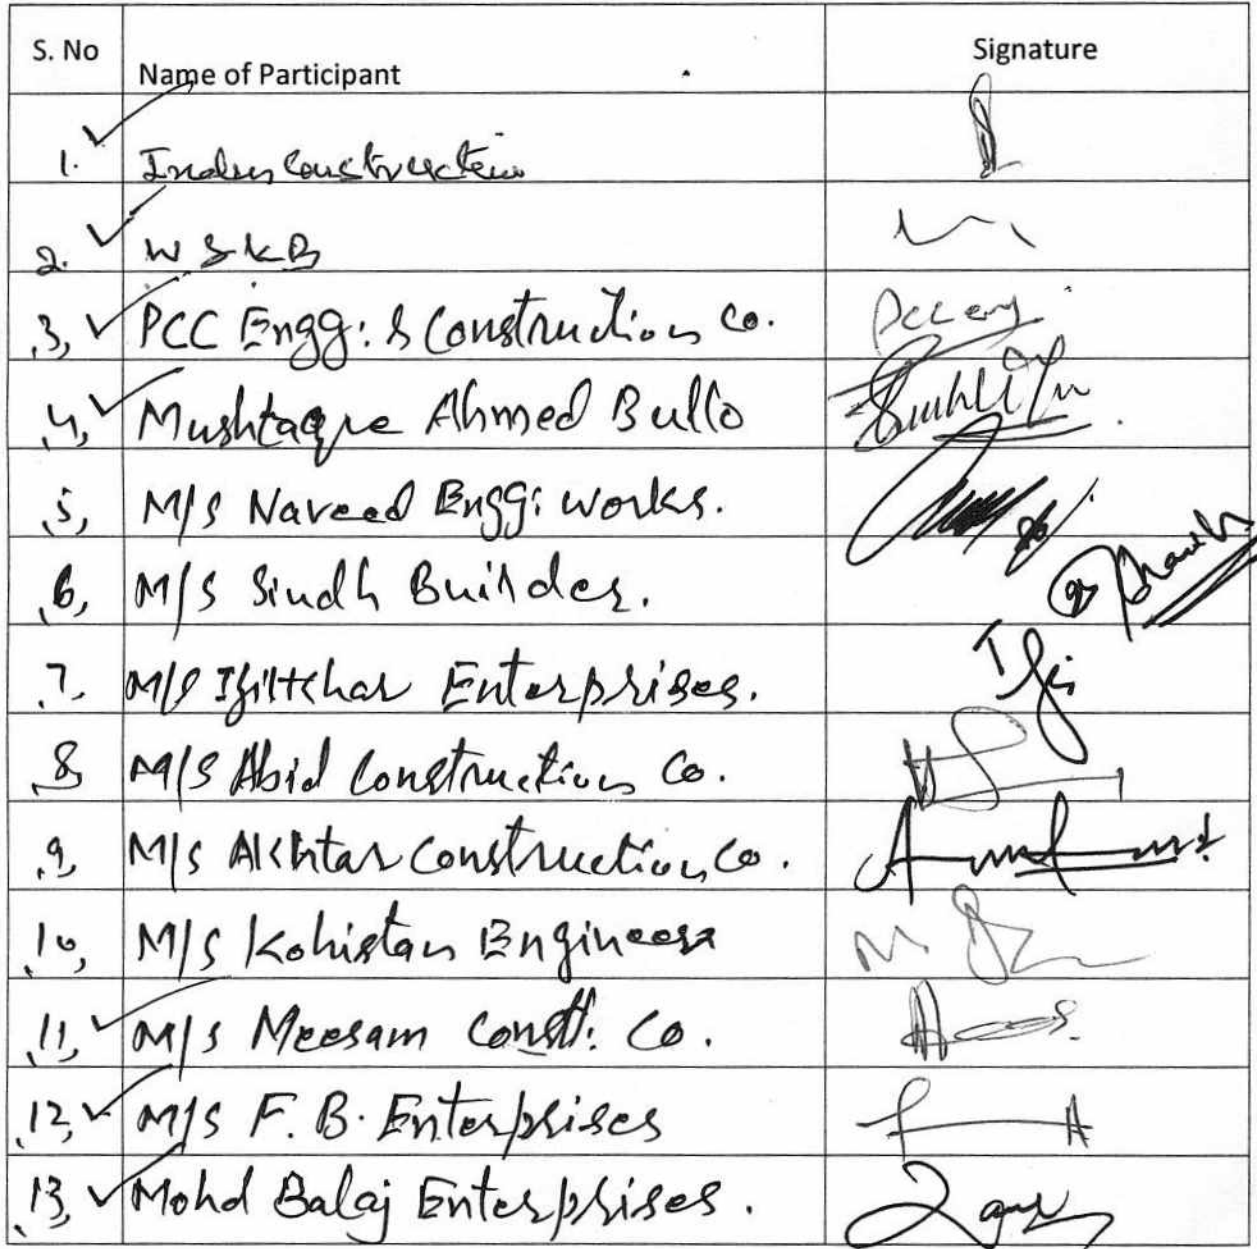 S. No Name of Participant Signature
1. Indus Construction
2. W S K B
3, PCC Engg: & Construction Co. PCC eng
4, Mushtaque Ahmed Bullo
5, M/S Naveed Engg: works.
6, M/S Sindh Builder.
7. M/S Ifiltkhar Enterprises.
8, M/S Abid Construction Co.
9, M/S Akhtar Construction Co.
10, M/S Kohistan Engineers
11, M/S Meesam Constt: Co.
12, M/S F. B. Enterprises
13, Mohd Balaj Enterprises.